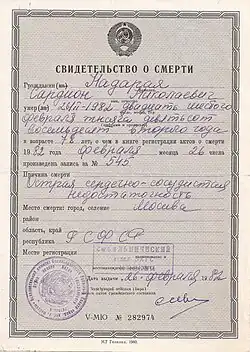 СВИДЕТЕЛЬСТВО О СМЕРТИ
Гражданин(ка) Надарая
Сардион Николаевич
умер(ла) двадцать шестого
февраля тысяча девятьсот
восемьдесят второго года
в возрасте 78 лет, о чем в книге регистрации актов о смерти
1982 года февраля месяца 26 числа
произведена запись за № 545
Причина смерти
Острая сердечно-сосудистая
недостаточность
Место смерти: город, селение Москва
район
область, край
республика РСФСР
Место регистрации
Дата выдачи 26 февраля 1982
V-МЮ № 282974